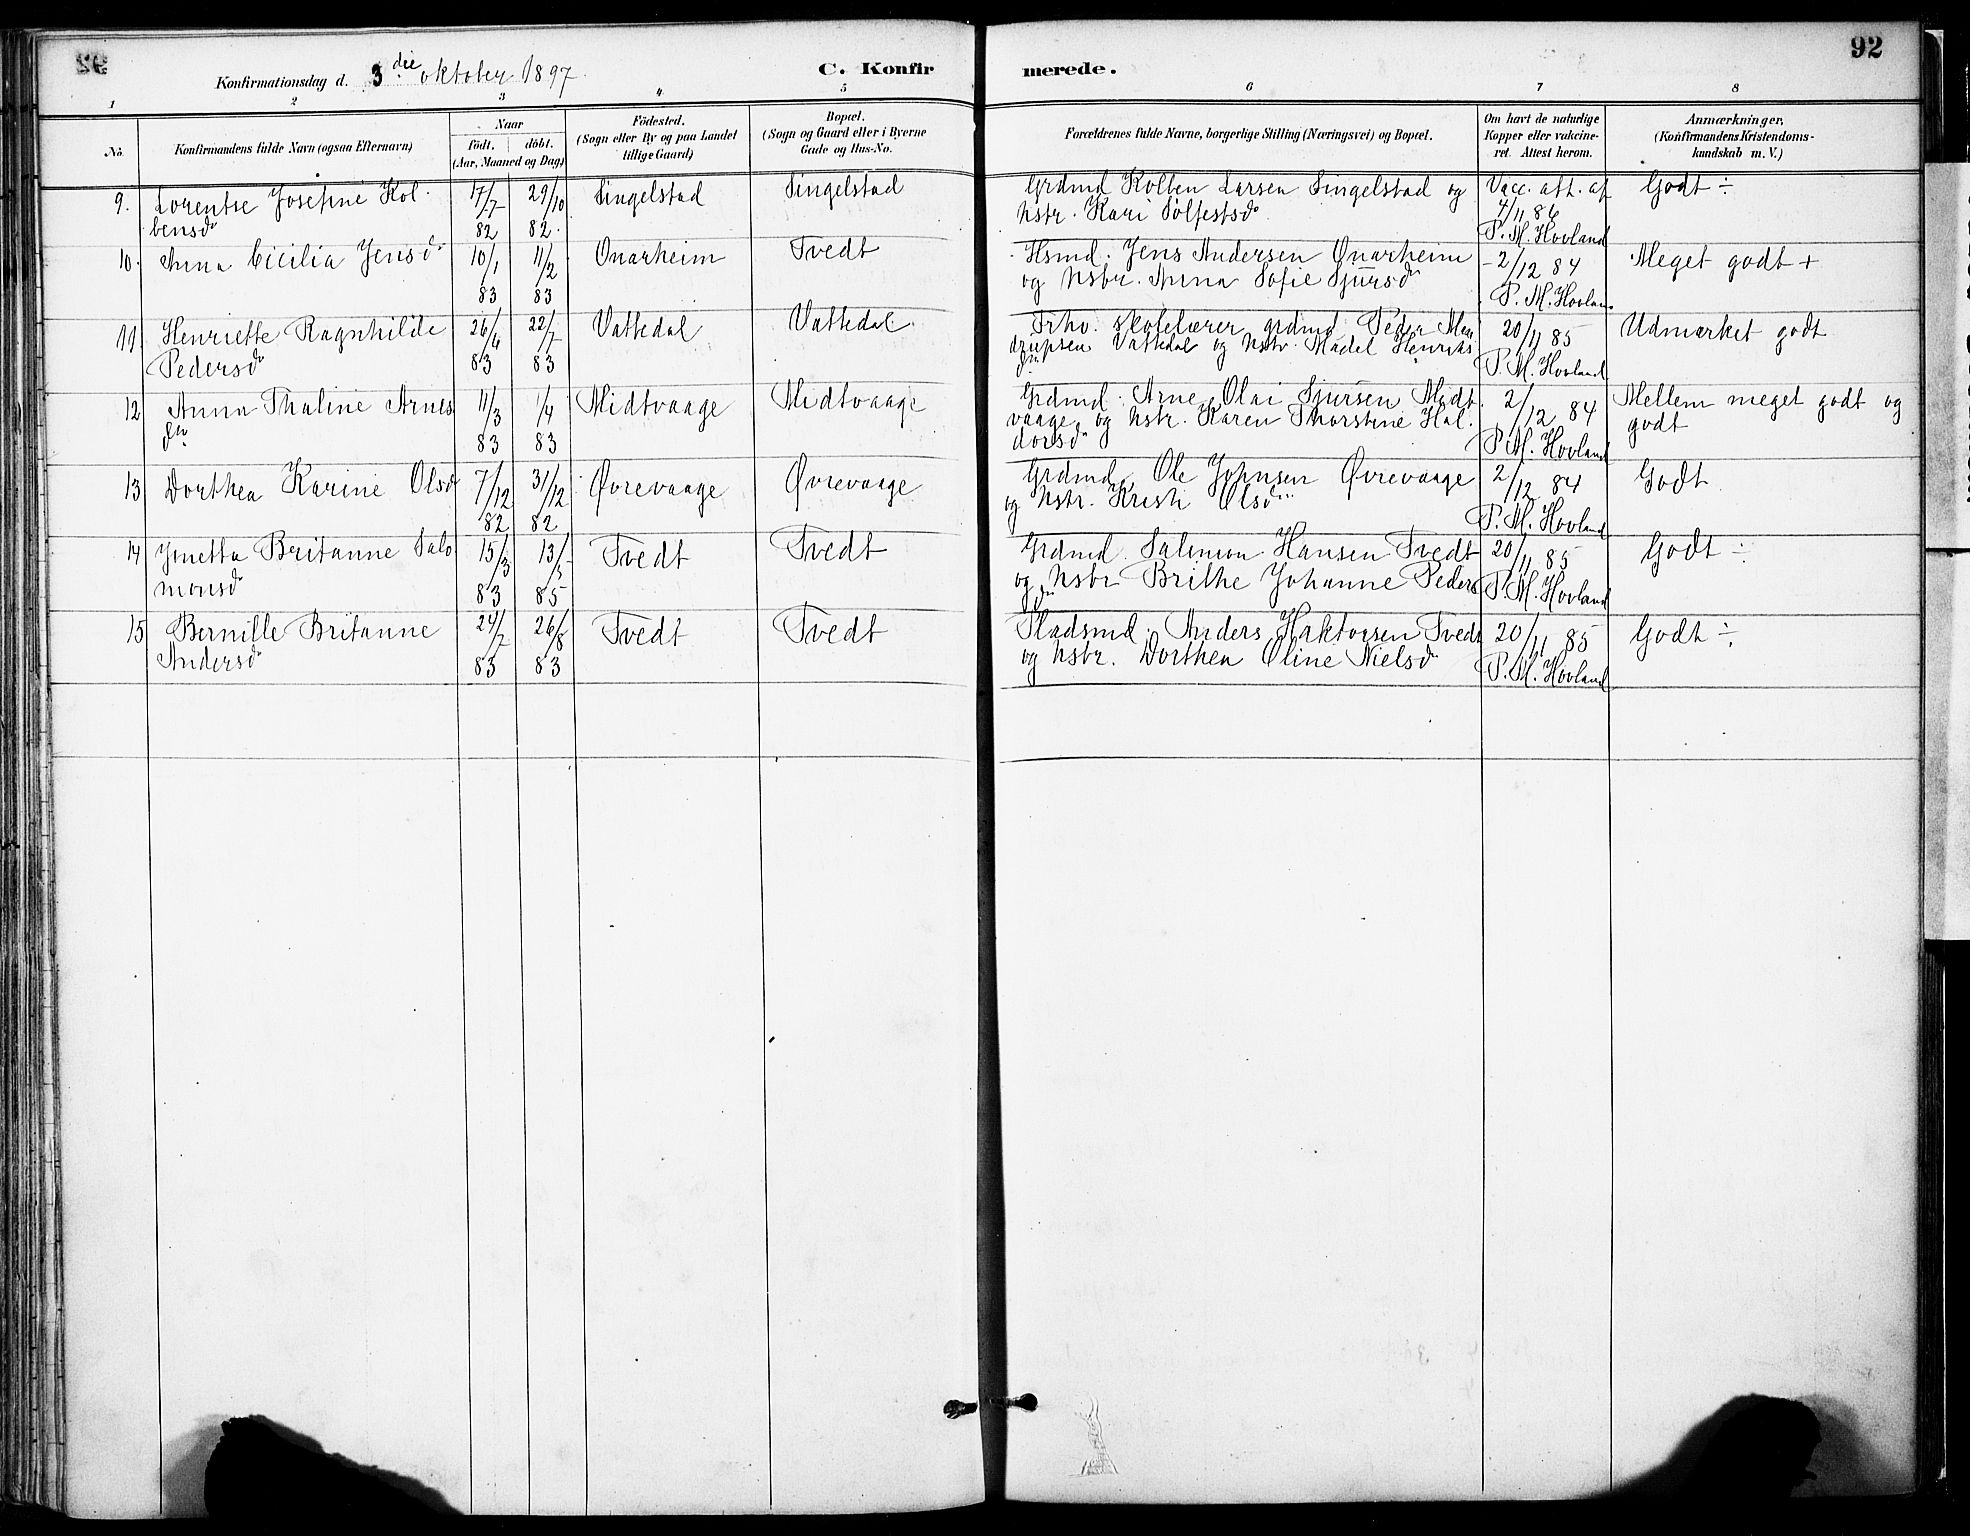 92
Konfirmationsdag d. 3die oktober 1897
C. Konfirmerede.
1 2 3 4 5 6 7 8
No.
Konfirmandens fulde Navn (ogsaa Efternavn)
Naar
födt. döbt.
(Aar, Maaned og Dag)
Födested.
(Sogn eller By og paa Landet
tillige Gaard)
Bopæl.
(Sogn og Gaard eller i Byerne
Gade og Hus-No.
Forældrenes fulde Navne, borgerlige Stilling (Næringsvei) og Bopæl.
Om havt de naturlige
Kopper eller vakcine-
ret. Attest herom.
Anmærkninger,
(Konfirmandens Kristendoms-
kundskab m. V.)
9. Lorentse Josefine Kol- 17/7 29/10 Singelstad Singelstad Grdmd Kolben Larsen Singelstad og Vacc. att. af Godt ÷
bensdr 82 82. hstr. Kari Solfestsdr. 4/11 86
P. M. Hovland
10. Anna Cicilia Jensdr 10/1 11/2 Onarheim Tvedt Hsmd. Jens Andersen Onarheim - 2/12 84 Meget godt +
83 83 og hstr. Anna Sofie Sjursdr P. M. Hovland
11 Henriette Ragnhilde 26/4 22/7 Vattedal Vattedal Frhv. skolelærer grdmd Peder 20/11 85 Udmærket godt
Pedersdr 83 83 Vattedal og hstr. Madel Henriks
dr P. M. Hovland
12 Anna Thaline Arnes 11/3 1/4 Midtvaage Midtvaage Grdmd. Arne Olai Sjursen Midt 2/12 84 Mellem meget godt og
dr 83 83 vaage og hstr. Karen Thorstine Hal- godt
dorsdr P. M. Hovland
13 Dorthea Karine Olsdr 7/12 31/12 Øvrevaage Øvrevaage Grdmd. Ole Johnsen Øvrevaage 2/12 84 Godt
82 82 og hstr. Kristi Olsdr P. M. Hovland
14 Jnetta Britanne Salo 15/3 13/5 Tvedt Tvedt Grdmd. Salomon Hansen Tvedt 20/11 85 Godt ÷
monsdr 83 85 og hstr Brithe Johanne Peders
dr P. M. Hovland
15 Bernille Britanne 24/7 26/8 Tvedt Tvedt Pladsmd. Anders Haktorsen Tvedt 20/11 85 Godt ÷
Andersdr 83 83 og hstr. Dorthea Oline Nielsdr P. M. Hovland